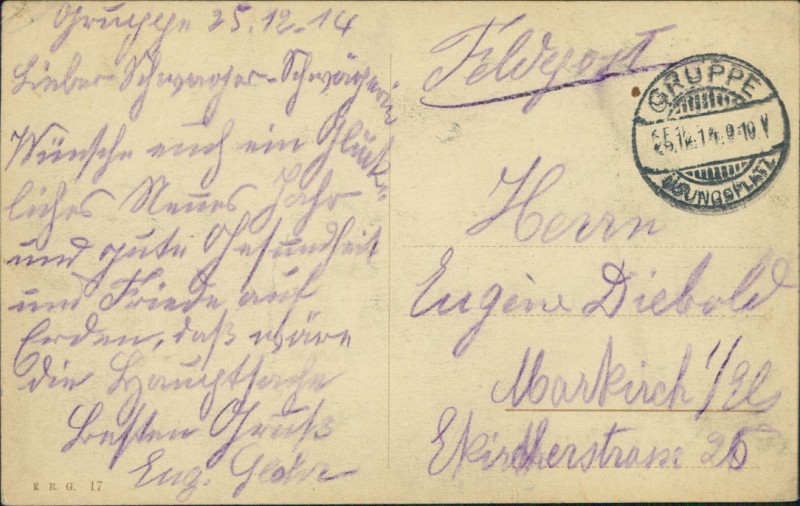 Gruppe 25.12.14
Lieber Schwager-Schwägerin
Wünsche euch ein Glück-
liches Neues Jahr
und gute Gesundheit
und Friede auf
Erden, daß wäre
die Hauptsache
Besten Gruß
Eug.
K. R. G. 17
Feldpost
GRUPPE
25.12.14.9-10 V
ÜBUNGSPLATZ
Herrn
Eugène Diebold
Markirch i/Els
26